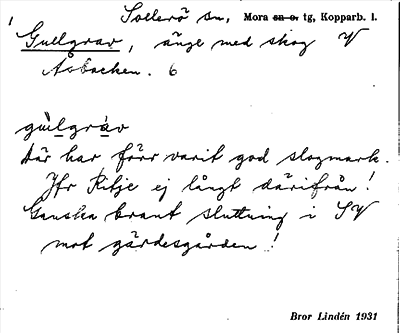 1 Sollerö sn, Mora sn o. tg, Kopparb. l.
Gullgrav, änge med skog V
Åsbacken. 6
gùlgràv
Där har förr varit god slogmark.
Jfr Ritje ej långt därifrån!
Ganska brant sluttning i SV
mot gärdesgården!
Bror Lindén 1931